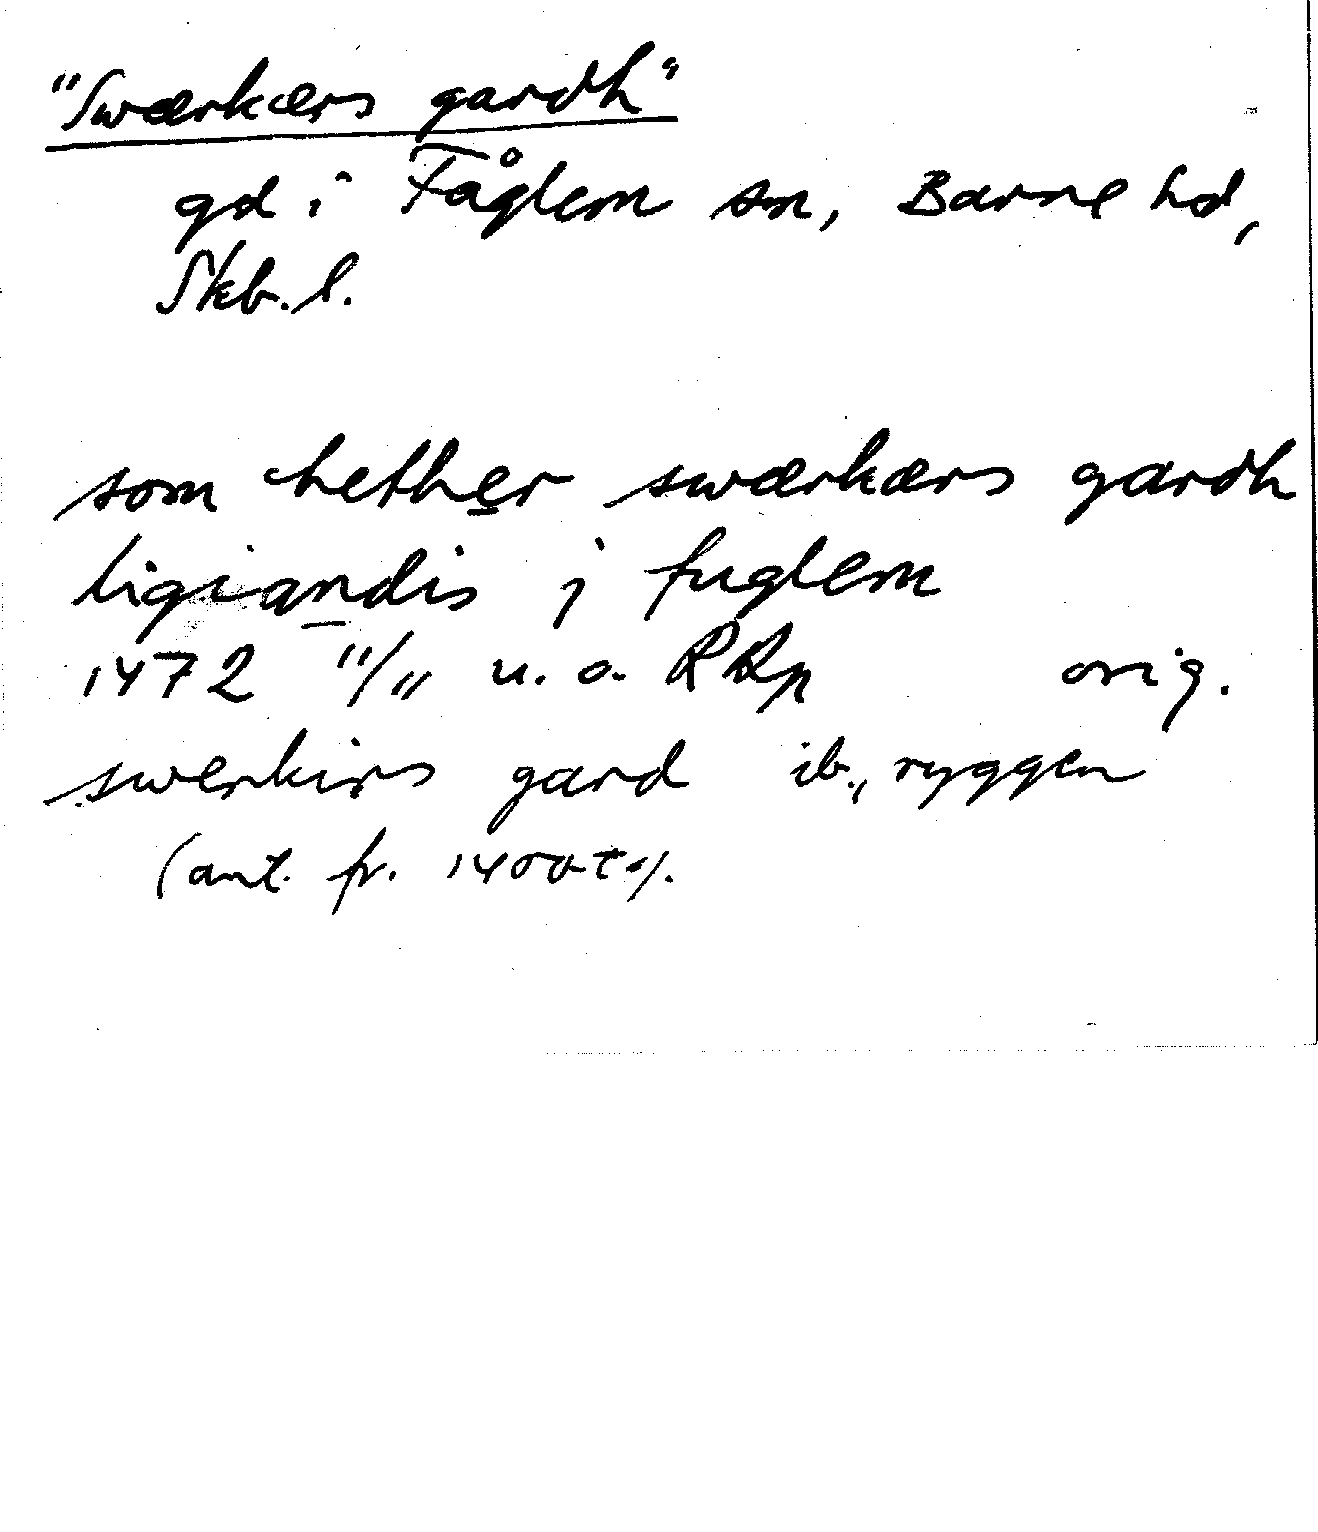 "Swærkærs gardh"
gd i Fåglem sn, Barne hd,
Skb. l.
som hether swærkærs gardh
ligiandis j fuglem
1472 11/11 u. o. RAp orig.
swerkirs gard ib., ryggen
(ant. fr. 1400-t.).